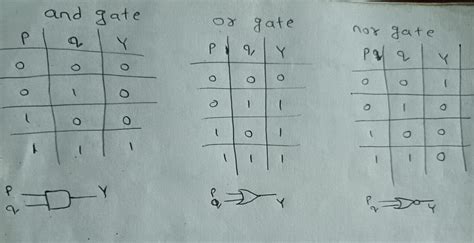 and gate
P q Y
0 0 0
0 1 0
1 0 0
1 1 1
P
q
Y
or gate
P q Y
0 0 0
0 1 1
1 0 1
1 1 1
P
q
Y
nor gate
P q Y
0 0 1
0 1 0
1 0 0
1 1 0
P
q
Y